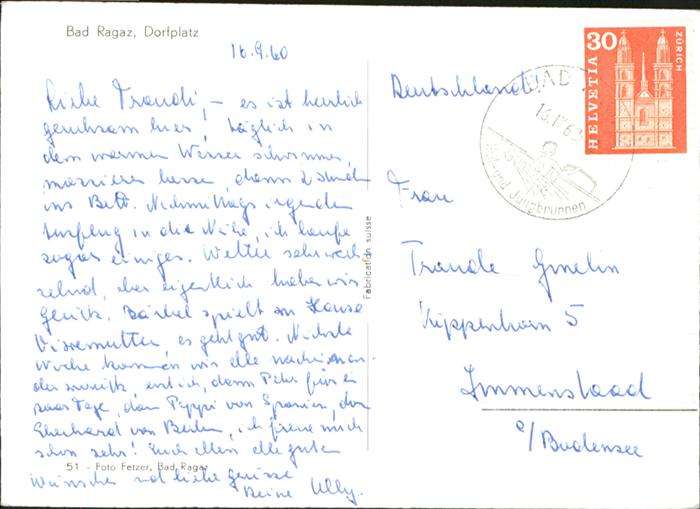 Bad Ragaz, Dorfplatz
16.9.60
Liebe Traudi, – es ist herrlich
geruhsam hier, täglich in
dem warmen Wasser schwimmen,
massieren lassen, dann 2 Stunden
ins Bett. Nachmittags irgenden
Ausflug in die Nähe, ich kaufe
sogar einiges. Wetter sehr wech-
selnd, aber eigentlich haben wir
Glück. Bärbel spielt zu Hause
es geht gut. Nächste
Woche kommen wir alle nacheinan-
der zurück, erst ich, dann Peter für ein
paar Tage, dann Pippi von Spanien, dann
Eberhard von Berlin, ich freue mich
schon sehr! Euch allen alle guten
51 - Foto Fetzer, Bad Ragaz
Wünsche und liebe Grüsse
Deine Ully.
Fabrication suisse
30
HELVETIA
ZÜRICH
BAD
Jungbrunnen
Deutschland
Frau
Traude Gmelin
Kippenhorn 5
Immenstaad
a/Bodensee